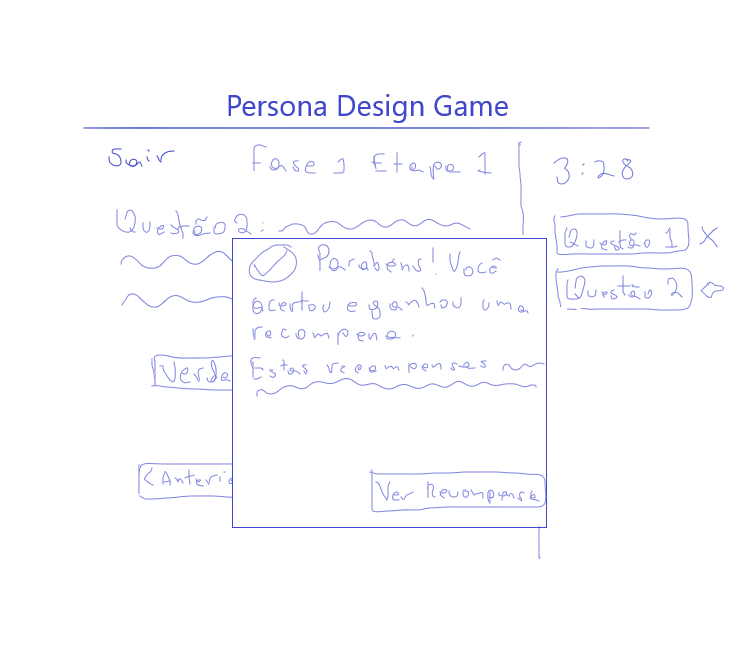 Persona Design Game
Sair
Fase 1 Etapa 1
3:28
Questão 2:
Questão 1 X
Questão 2
Parabéns! Você
acertou e ganhou uma
recompena.
Estas recompensas
Verda
< Anterio
Ver Recompensa